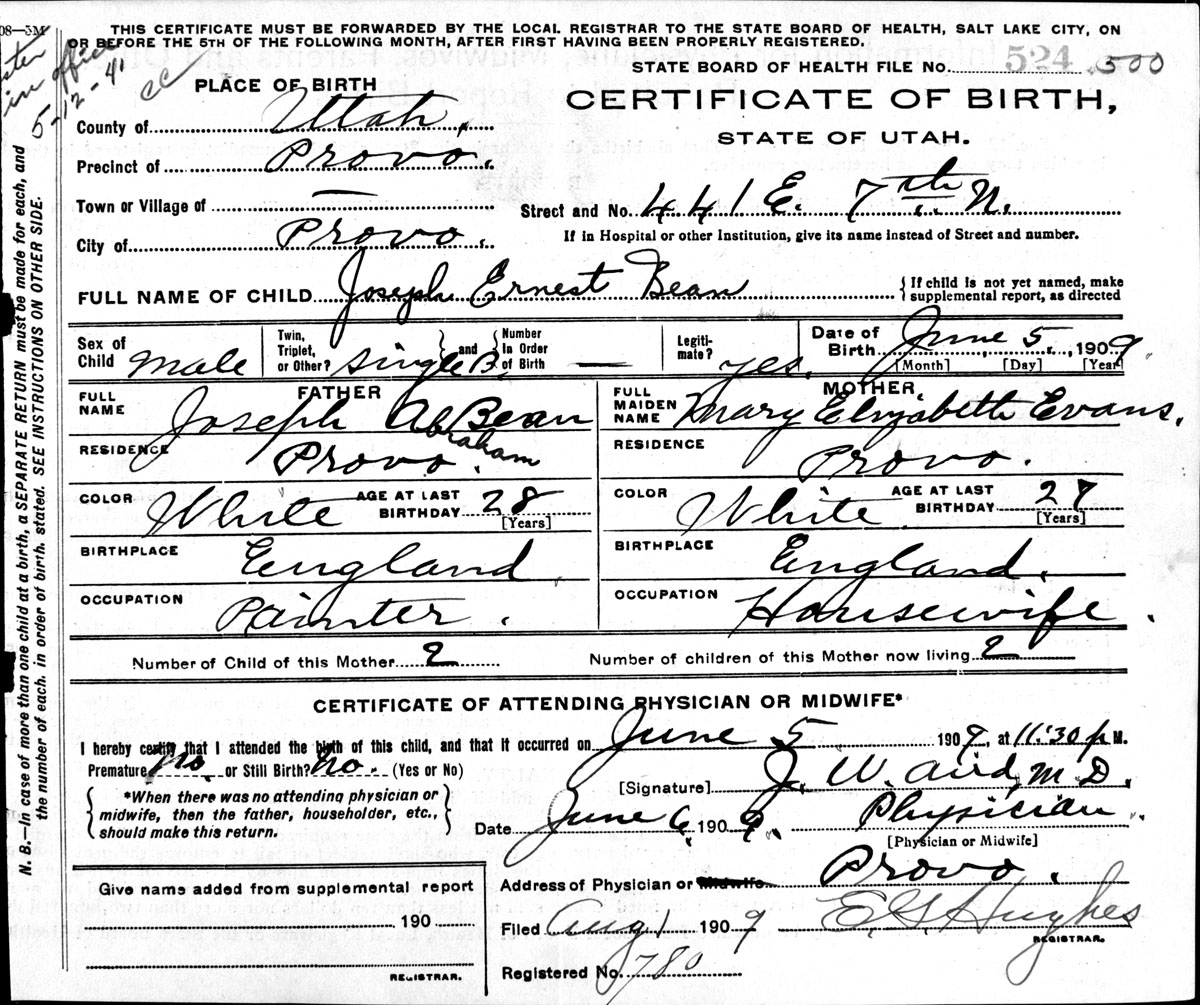 08—5M
THIS CERTIFICATE MUST BE FORWARDED BY THE LOCAL REGISTRAR TO THE STATE BOARD OF HEALTH, SALT LAKE CITY, ON
OR BEFORE THE 5TH OF THE FOLLOWING MONTH, AFTER FIRST HAVING BEEN PROPERLY REGISTERED.
in office
5-12-41
cc
STATE BOARD OF HEALTH FILE No. 524 500
PLACE OF BIRTH
CERTIFICATE OF BIRTH,
STATE OF UTAH.
County of Utah.
Precinct of Provo.
Town or Village of —
Street and No. 441 E. 7th N.
City of Provo.
If in Hospital or other Institution, give its name instead of Street and number.
FULL NAME OF CHILD Joseph Ernest Bean
If child is not yet named, make
supplemental report, as directed
Sex of Child Male
Twin, Triplet, or Other? Single B. and Number In Order of Birth —
Legiti-mate? yes.
Date of Birth June 5, 1909
[Month] [Day] [Year]
FATHER
FULL NAME Joseph A Bean
Abraham
RESIDENCE Provo.
COLOR White AGE AT LAST BIRTHDAY 28
[Years]
BIRTHPLACE England.
OCCUPATION Painter.
MOTHER,
FULL MAIDEN NAME Mary Elizabeth Evans.
RESIDENCE Provo.
COLOR White AGE AT LAST BIRTHDAY 27
[Years]
BIRTHPLACE England.
OCCUPATION Housewife.
Number of Child of this Mother 2
Number of children of this Mother now living 2
CERTIFICATE OF ATTENDING PHYSICIAN OR MIDWIFE*
I hereby certify that I attended the birth of this child, and that it occurred on June 5 1909, at 11:30 p M.
Premature No. or Still Birth? No. (Yes or No)
[Signature] J. W. Aird, M. D.
*When there was no attending physician or
midwife, then the father, householder, etc.,
should make this return.
Date June 6, 1909. Physician.
[Physician or Midwife]
Address of Physician or Midwife Provo.
Give name added from supplemental report
190
REGISTRAR.
Filed Aug 1 1909 E G Hughes
REGISTRAR.
Registered No. 780
N. B.—In case of more than one child at a birth, a SEPARATE RETURN must be made for each, and
the number of each. in order of birth. stated. SEE INSTRUCTIONS ON OTHER SIDE.